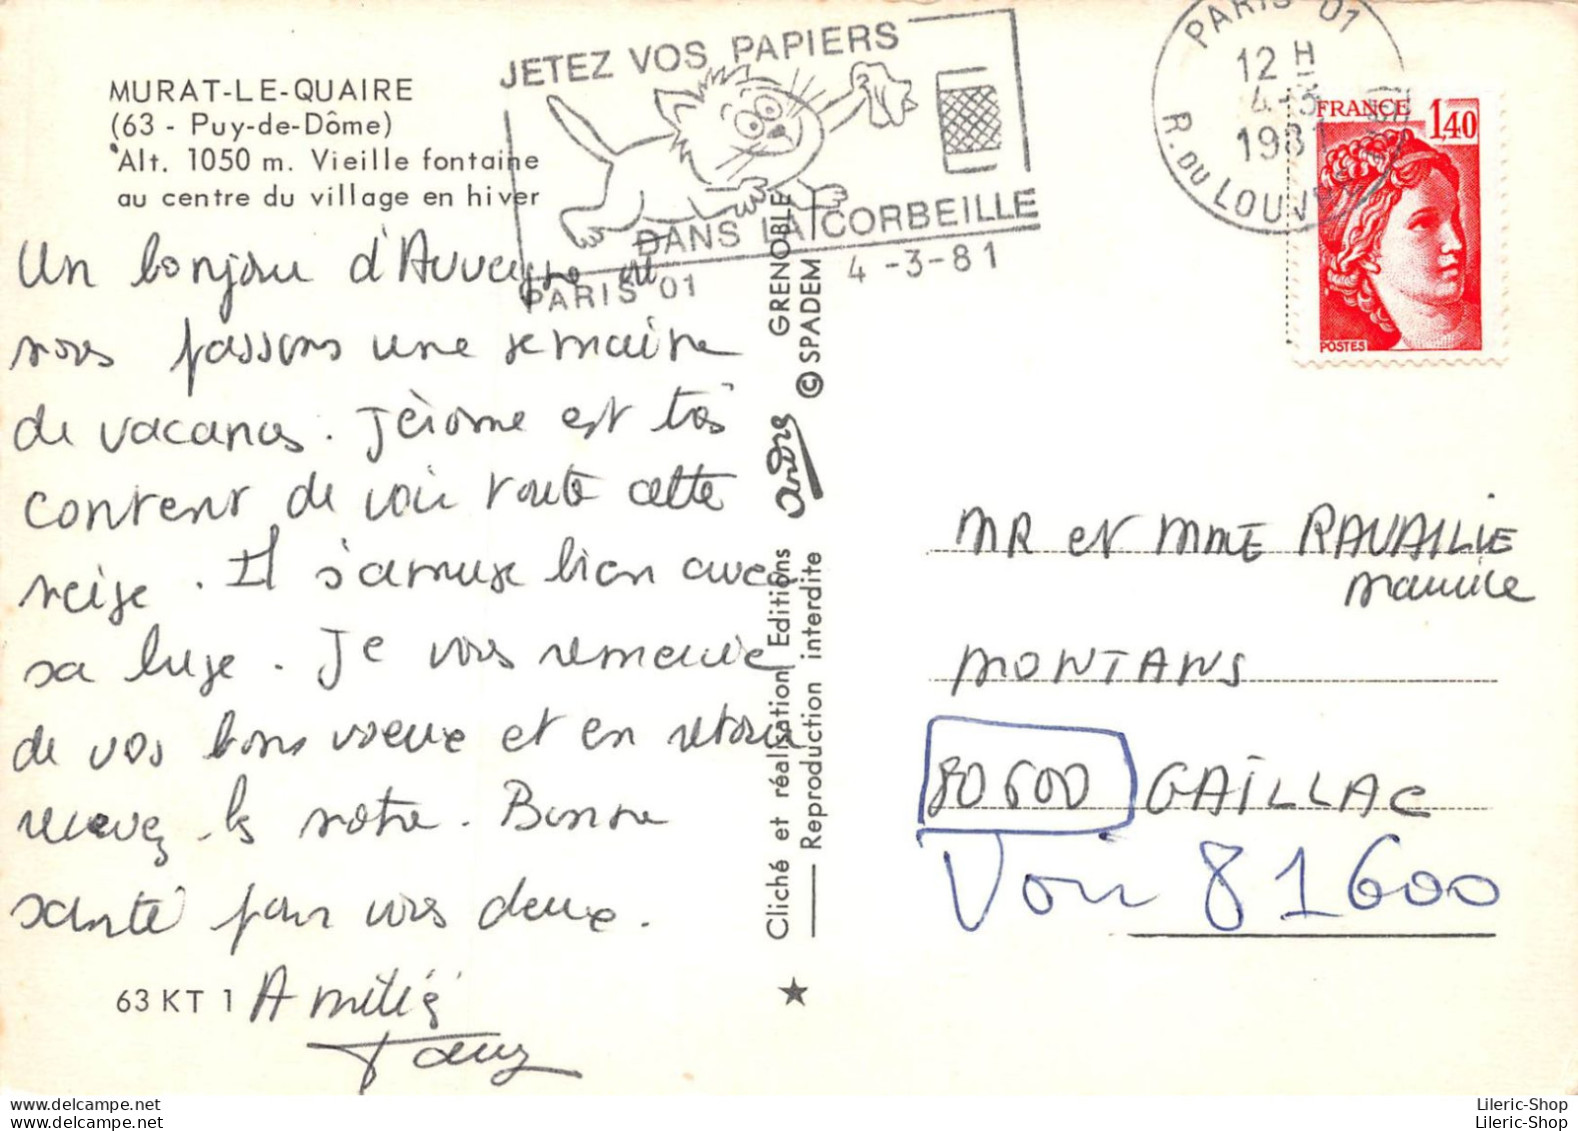 MURAT-LE-QUAIRE
(63 - Puy-de-Dôme)
Alt. 1050 m. Vieille fontaine
au centre du village en hiver
JETEZ VOS PAPIERS
DANS LA CORBEILLE
PARIS 01
4-3-81
PARIS 01
12 H
4-3
1981
R. DU LOUVRE
FRANCE
1,40
POSTES
Un bonjour d'Auvergne où
nous passons une semaine
de vacances. Jérôme est très
content de voir toute cette
neige. Il s'amuse bien avec
sa luge. Je vous remercie
de vos bons voeux et en retour
recevez les notre. Bonne
santé pour vous deux.
Amitiés
63 KT 1
Cliché et réalisation Editions andré GRENOBLE
Reproduction interdite © SPADEM
MR et MME RAVAILLE
maurice
MONTANS
80600 GAILLAC
Voir 81600
Lileric-Shop
Lileric-Shop
Lileric-shop.com
Lileric-shop.com